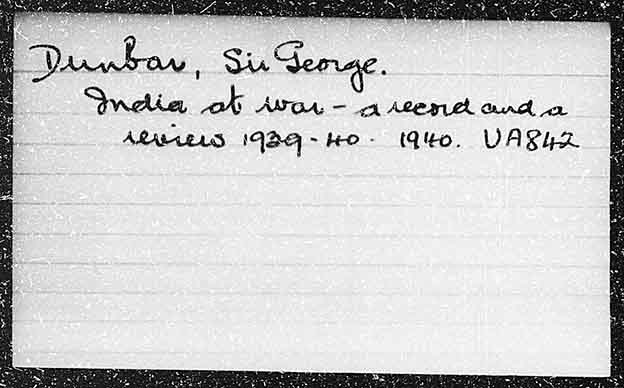 Dunbar, Sir George.
India at war - a record and a
review 1939-40. 1940. UA842